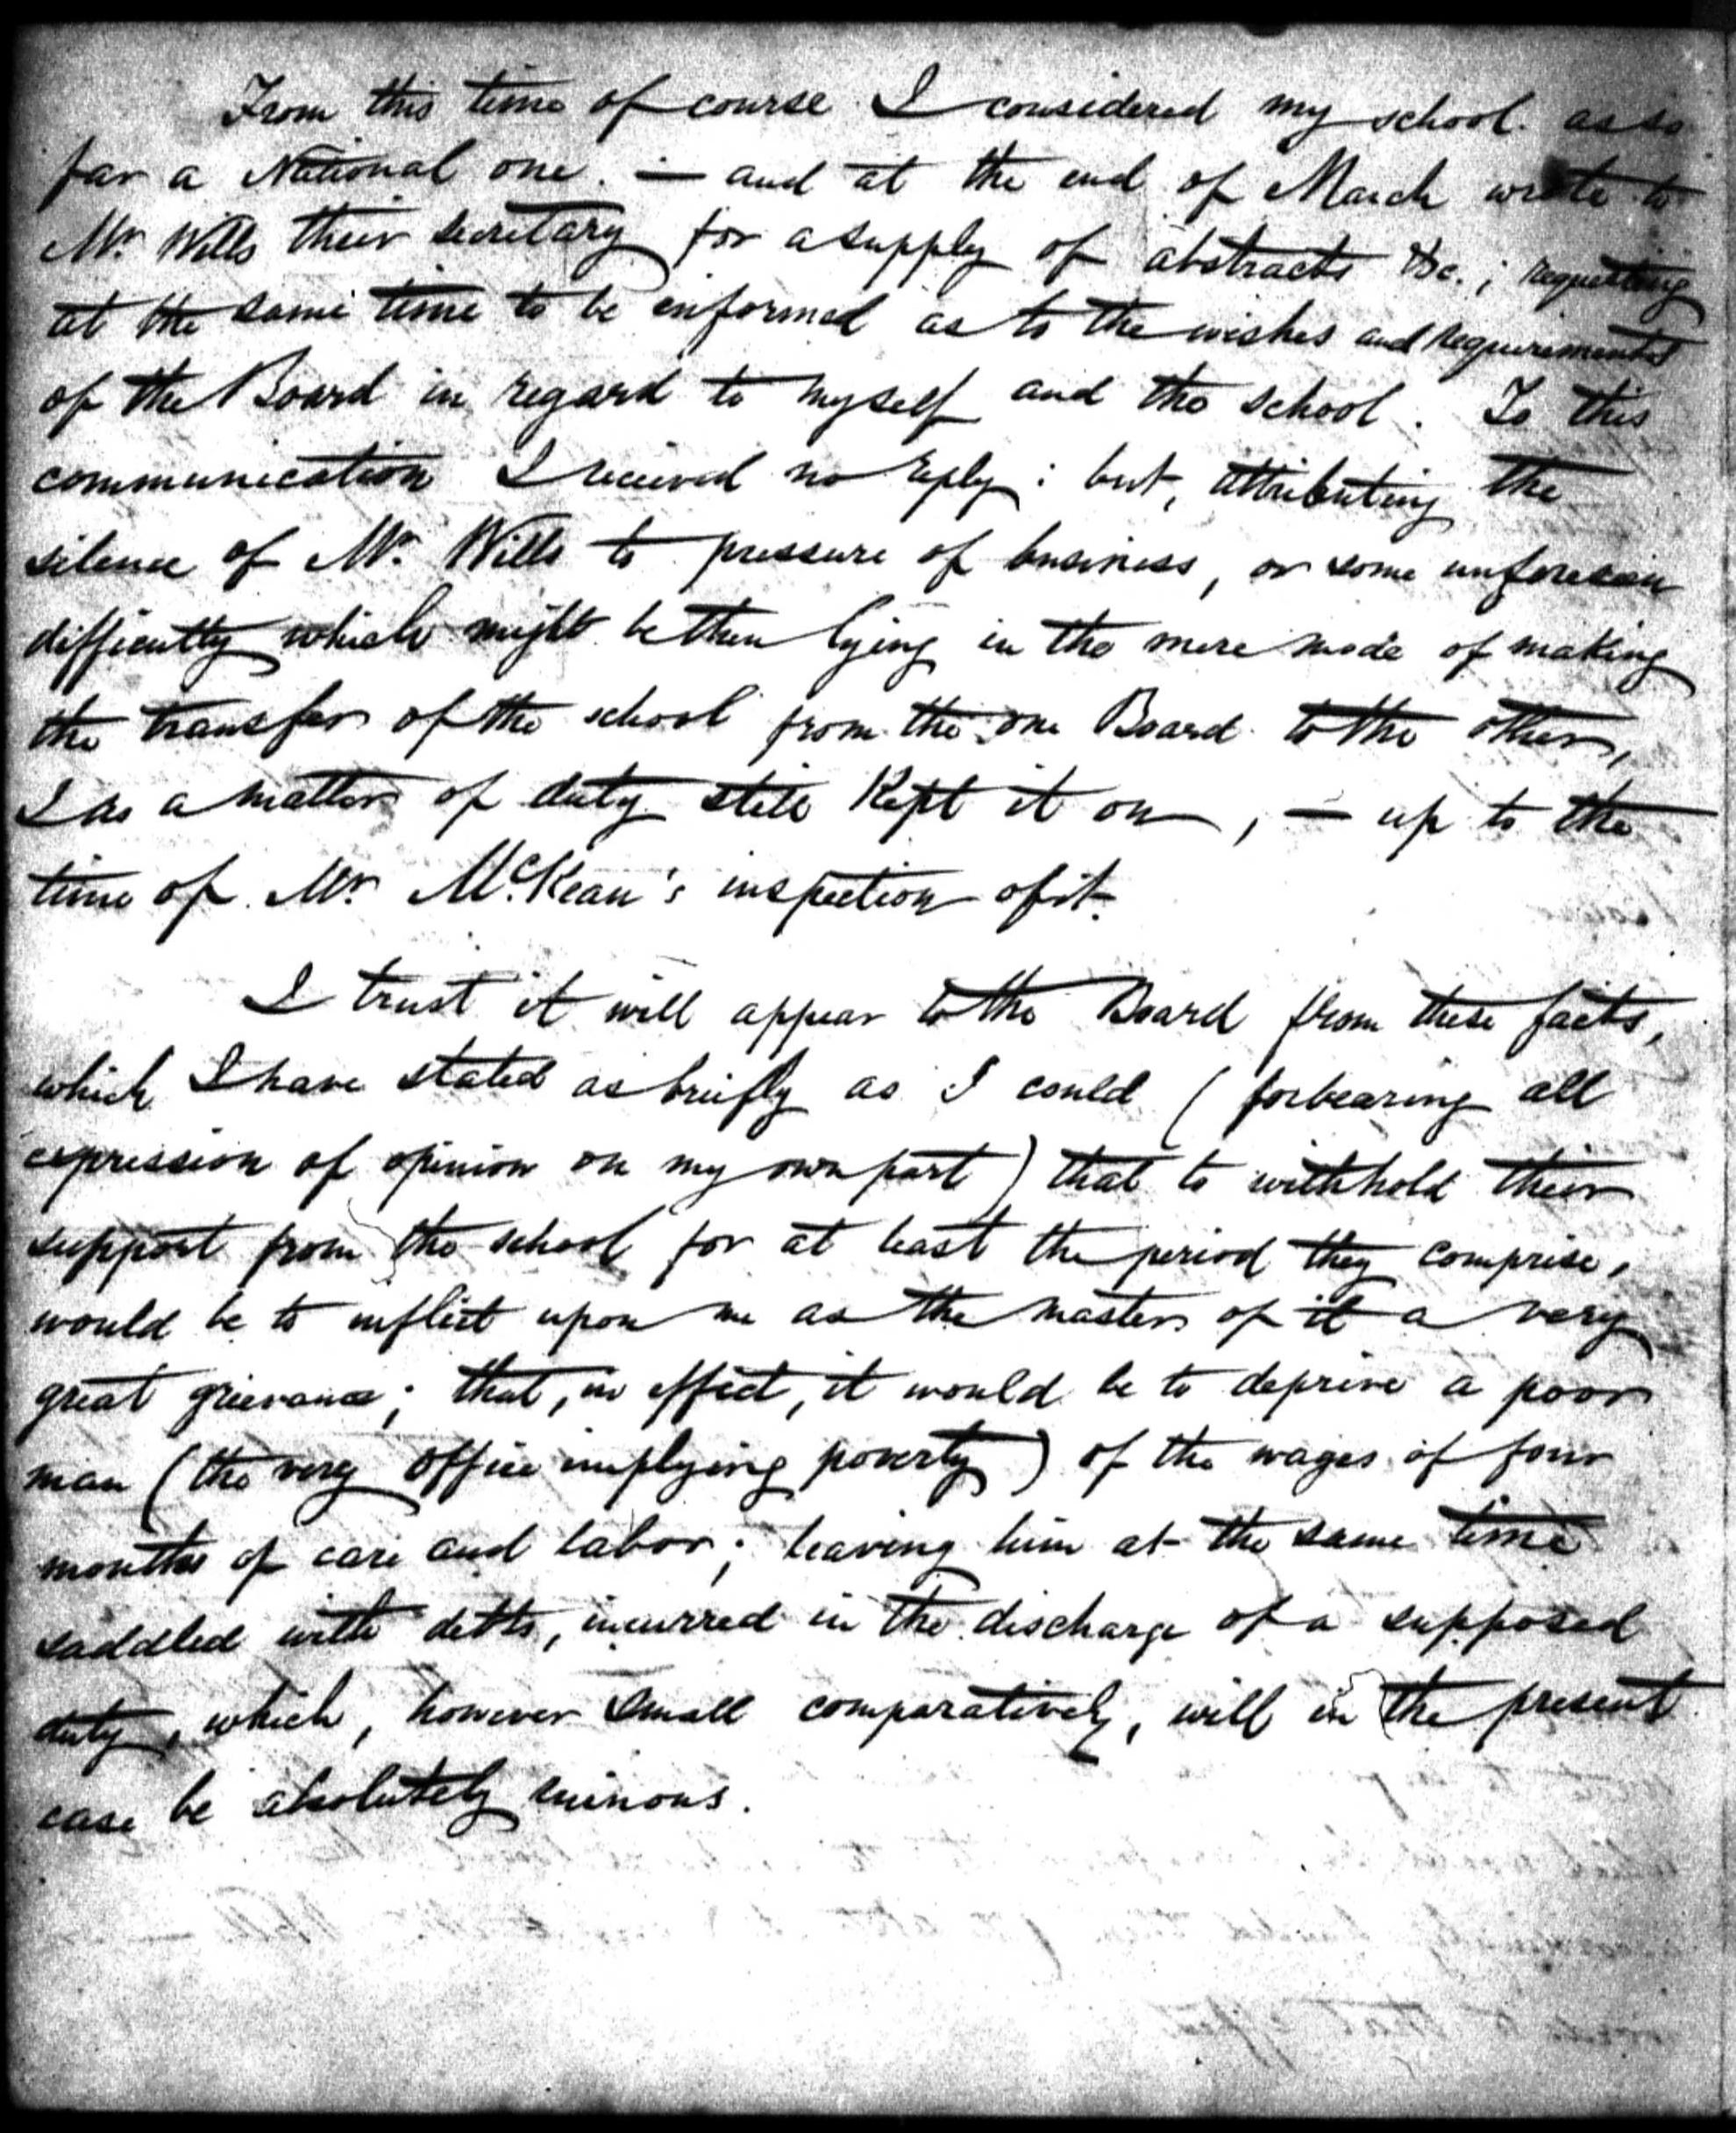 From this time of course I considered my school as so
far a National one. — and at the end of March wrote to
Mr. Wills their secretary for a supply of abstracts &c.; requesting
at the same time to be informed as to the wishes and requirements
of the Board in regard to myself and the school. To this
communication I received no reply: but, attributing the
silence of Mr. Wills to pressure of business, or some unforeseen
difficulty which might be then lying in the mere mode of making
the transfer of the school from the one Board to the other,
I as a matter of duty still kept it on, — up to the
time of Mr. McKean's inspection of it.
I trust it will appear to the Board from these facts,
which I have stated as briefly as I could (forbearing all
expression of opinion on my own part) that to withhold their
support from the school for at least the period they comprise,
would be to inflict upon me as the master of it a very
great grievance; that, in effect, it would be to deprive a poor
man (the very office implying poverty) of the wages of four
months of care and labor; leaving him at the same time
saddled with debts, incurred in the discharge of a supposed
duty, which, however small comparatively, will in the present
case be absolutely ruinous.